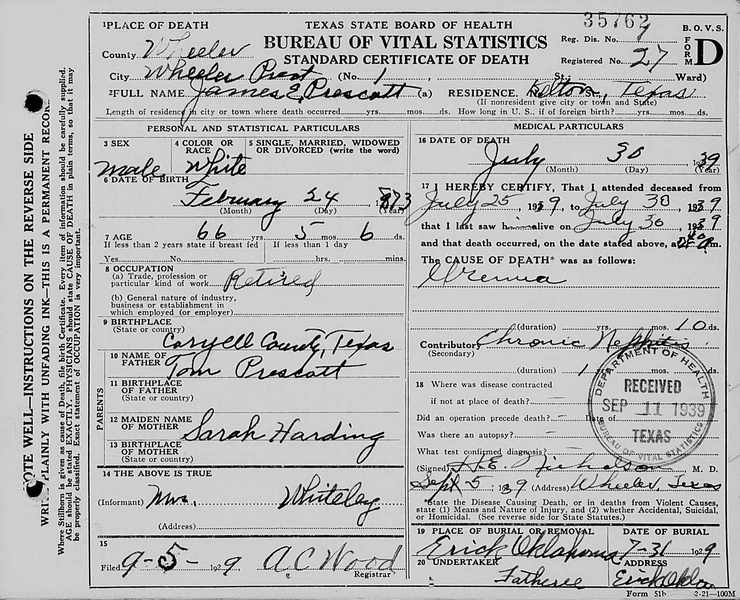 ¹PLACE OF DEATH
TEXAS STATE BOARD OF HEALTH
35762
County Wheeler
BUREAU OF VITAL STATISTICS
Reg. Dis. No. 7
B. O. V. S. FORM D
STANDARD CERTIFICATE OF DEATH
Registered No. 27
City Wheeler Prect (No. 1, St., Ward)
²FULL NAME James E. Prescott (a) RESIDENCE. Kelton, Texas
(If nonresident give city or town and State)
Length of residence in city or town where death occurred yrs. mos. ds. How long in U. S., if of foreign birth? yrs. mos. ds.
PERSONAL AND STATISTICAL PARTICULARS
3 SEX
4 COLOR OR RACE
5 SINGLE, MARRIED, WIDOWED OR DIVORCED (write the word)
Male White
6 DATE OF BIRTH
February 24 1873
(Month) (Day) (Year)
7 AGE 66 yrs. 5 mos. 6 ds.
If less than 2 years state if breast fed If less than 1 day
Yes No hrs. mins.
8 OCCUPATION
(a) Trade, profession or particular kind of work Retired
(b) General nature of industry, business or establishment in which employed (or employer)
9 BIRTHPLACE
(State or country) Coryell County, Texas
10 NAME OF FATHER Tom Prescott
PARENTS
11 BIRTHPLACE OF FATHER
(State or country)
12 MAIDEN NAME OF MOTHER Sarah Harding
13 BIRTHPLACE OF MOTHER
(State or country)
14 THE ABOVE IS TRUE
(Informant) Mrs. Whiteley
(Address)
15
Filed 9-5- 1929 A C Wood
Registrar
MEDICAL PARTICULARS
16 DATE OF DEATH
July 30 1939
(Month) (Day) (Year)
17 I HEREBY CERTIFY, That I attended deceased from
July 25, 1939 to July 30, 1939
that I last saw him alive on July 30, 1939
and that death occurred, on the date stated above, at m.
The CAUSE OF DEATH* was as follows:
Uremia
(duration) yrs. mos. 10 ds.
Contributory Chronic Nephritis
(Secondary)
(duration) 1
18 Where was disease contracted
if not at place of death?
Did an operation precede death? –
Was there an autopsy? –
What test confirmed diagnosis?
(Signed) H.E. Nicholson M. D.
Sept 5, 1939 (Address) Wheeler Texas
*State the Disease Causing Death, or in deaths from Violent Causes, state (1) Means and Nature of Injury, and (2) whether Accidental, Suicidal, or Homicidal. (See reverse side for State Statutes.)
DEPARTMENT OF HEALTH
RECEIVED
SEP 11 1939
TEXAS
BUREAU OF VITAL STATISTICS
19 PLACE OF BURIAL OR REMOVAL
DATE OF BURIAL
Erick Oklahoma 7-31 1929
20 UNDERTAKER
ADDRESS
Fatheree Erick Okla
Form 51b 2-21-100M
OTE WELL—INSTRUCTIONS ON THE REVERSE SIDE
WRITE PLAINLY WITH UNFADING INK—THIS IS A PERMANENT RECORD
Where Stillborn is given as cause of Death, file Birth Certificate. Every item of information should be carefully supplied.
AGE should be stated EXACTLY. PHYSICIANS should state CAUSE OF DEATH in plain terms, so that it may
be properly classified. Exact statement of OCCUPATION is very important.